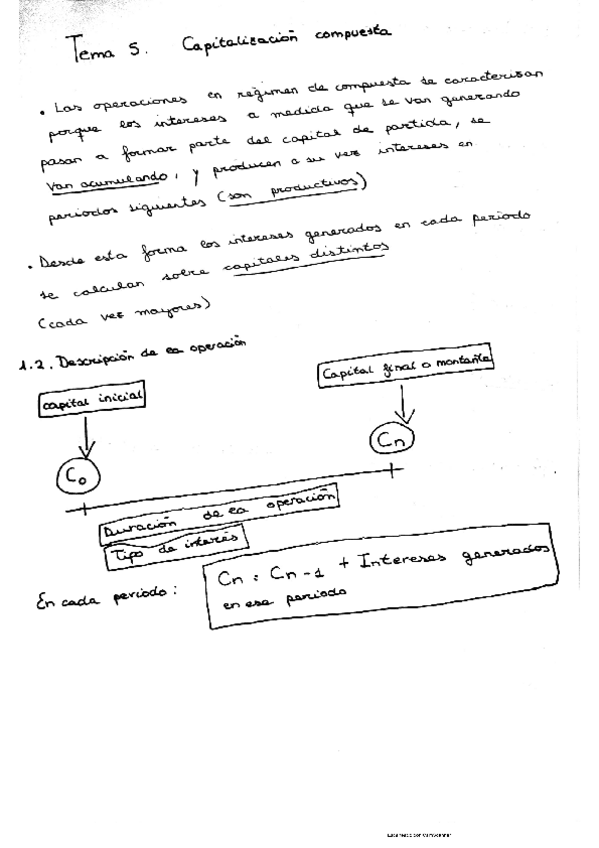 Tema 5. Capitalización compuesta
• Las operaciones en régimen de compuesta se caracterizan
porque los intereses a medida que se van generando
pasan a formar parte del capital de partida, se
van acumulando, y producen a su vez intereses en
periodos siguientes (son productivos)
• Desde esta forma los intereses generados en cada periodo
se calculan sobre capitales distintos
(cada vez mayores)
1.2. Descripción de la operación
capital inicial
Capital final o montante
C₀
Cn
Duración de la operación
Tipo de interés
En cada periodo:
Cn = Cn-1 + Intereses generados
en ese periodo